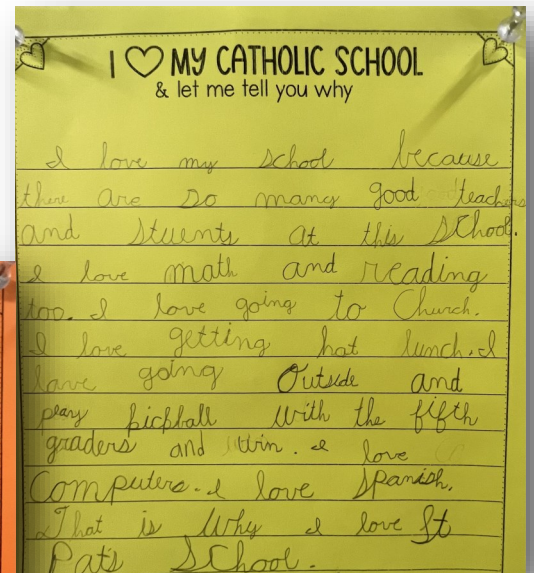 I ♡ MY CATHOLIC SCHOOL
& let me tell you why
I love my school because
there are so many good teachers
and stuents at this School.
I love math and reading
too. I love going to Church.
I love getting hot lunch. I
love going Outside and
peay bickball with the fifth
graders and win. I love
Computers. I love Spanish.
That is Why I love St
Pats School.